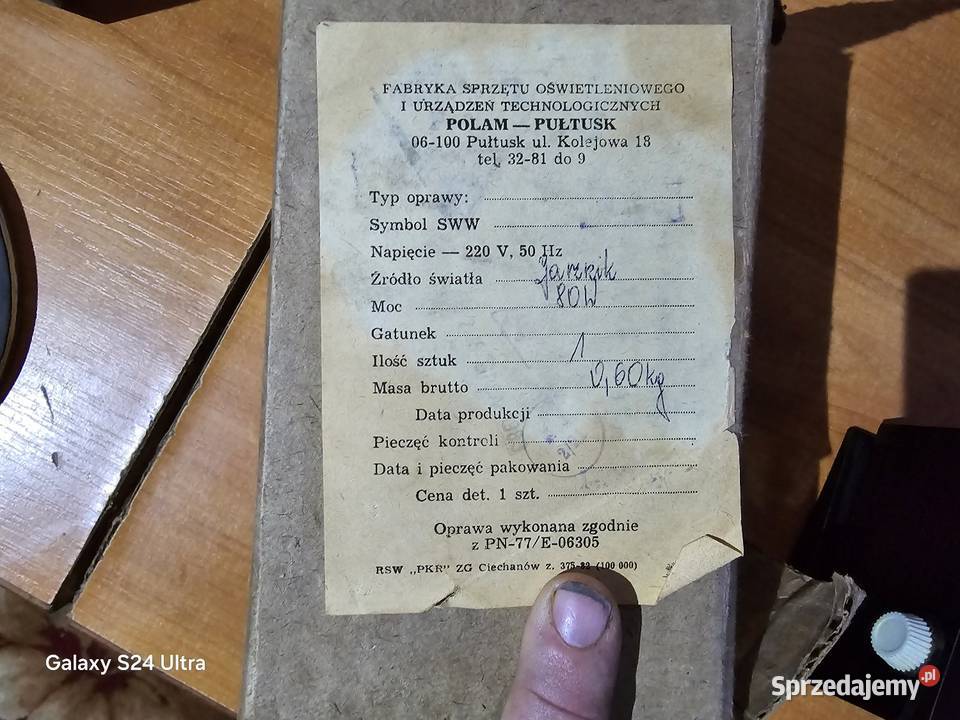 FABRYKA SPRZĘTU OŚWIETLENIOWEGO
I URZĄDZEŃ TECHNOLOGICZNYCH
POLAM — PUŁTUSK
06-100 Pułtusk ul. Kolejowa 18
tel. 32-81 do 9
Typ oprawy:
Symbol SWW
Napięcie — 220 V, 50 Hz
Źródło światła
Moc 80W
Gatunek
Ilość sztuk 1
Masa brutto 0,60kg
Data produkcji
Pieczęć kontroli
Data i pieczęć pakowania
Cena det. 1 szt.
Oprawa wykonana zgodnie
z PN-77/E-06305
RSW „PKR" ZG Ciechanów z. 375-82 (100 000)
Galaxy S24 Ultra
Sprzedajemy.pl